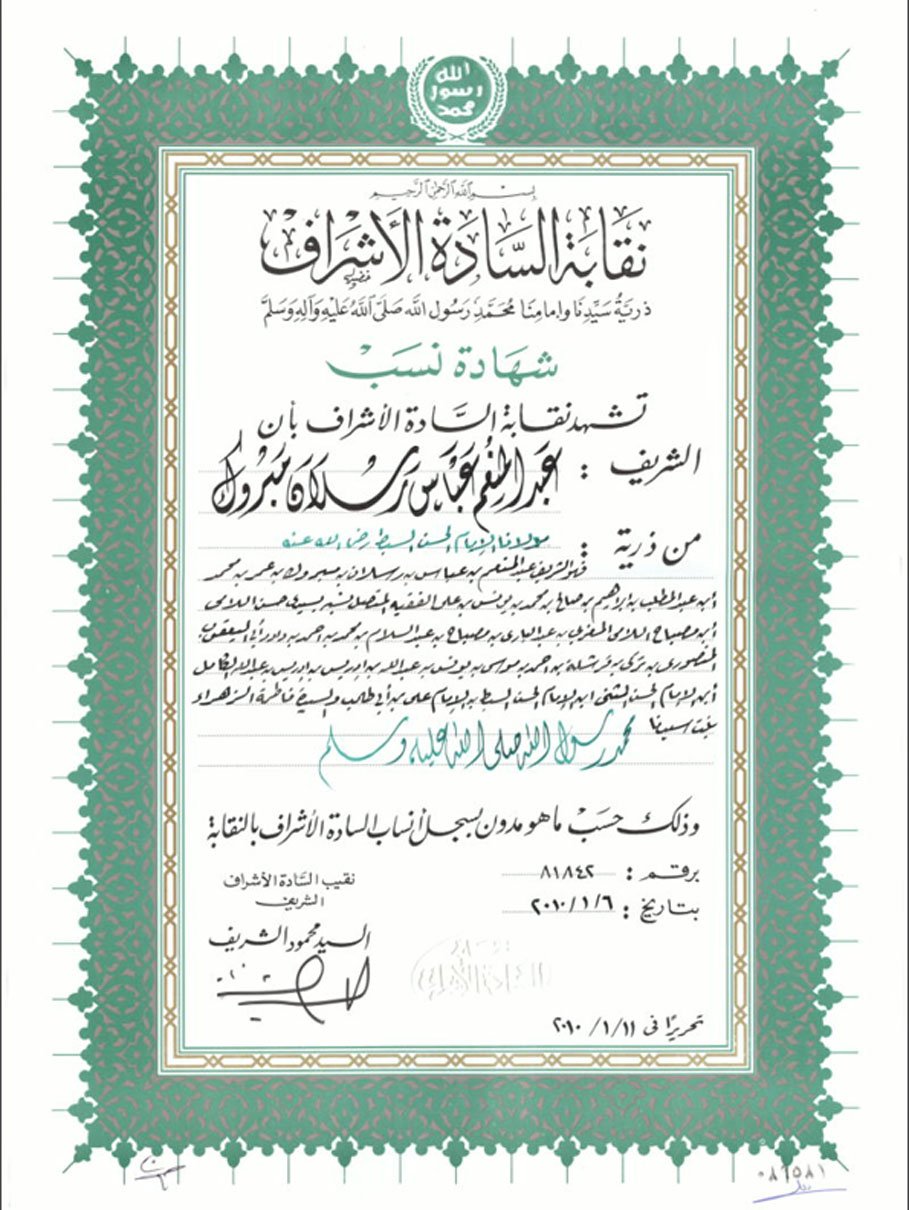 الله
رسول
محمد
بسم الله الرحمن الرحيم
نقابة السَّادة الأشراف
ذريَّةُ سَيِّدِنَا وإمامِنَا مُحَمَّدٍ رَسُول الله صَلَّى اللهُ عَلَيْهِ وَآلِهِ وَسَلَّمَ
شهادة نسب
تشهد نقابة السَّادة الأشراف بأن
الشريف : عبد المنعم عباس رسلان مبروك
من ذرية : مولانا الإمام الحسن السبط رضى الله عنه
فهو الشريف عبد المنعم بن عباس بن رسلان بن مبروك بن عمر بن محمد
ابن عبد المطلب بن إبراهيم بن صالح بن محمد بن يونس بن على الفقيه المتصل نسبه بسيدى حسن اللامى
ابن مصباح اللامى المغربى بن عبد البارى بن مصباح بن عبد السلام بن محمد بن احمد بن داود أبى اليعقوب
المنصورى بن تركى بن قرشلة بن احمد بن موسى بن يونس بن عبد الله بن ادريس بن ادريس بن عبد الله الكامل
ابن الإمام الحسن المثنى ابن الإمام الحسن السبط بن الإمام على بن أبى طالب والسيدة فاطمة الزهراء
بنت سيدنا
محمد رسول الله صلى الله عليه وسلم
وذلك حسب ما هو مدون بسجل أنساب السادة الأشراف بالنقابة
برقم : ٨١٨٤٢
بتاريخ : ٢٠١٠/١/٦
نقيب السَّادة الأشراف
الشريف
السيد محمود الشريف
السادة الأشراف
تحريرًا فى ٢٠١٠/١/١١